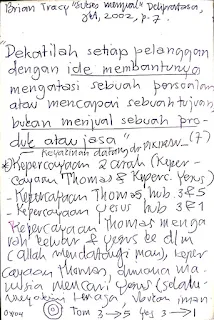 Brian Tracy "Sukses menjual" Delapratasa,
2002, p. 7.
"Dekatilah setiap pelanggan
dengan ide membantunya
mengatasi sebuah persoalan
atau mencapai sebuah tujuan,
bukan menjual sebuah pro-
duk atau jasa" (7)
Keyakinan datang dr
Kepercayaan 2 arah (Keper-
cayaan Thomas & Keperc. Yesus)
- Kepercayaan Thomas, hub 3&5
- Kepercayaan Yesus hub 3&1
Kepercayaan Thomas menga
rah keluar & Yesus ke dlm
(Allah mendatangi man), keper
cayaan Thomas, dimana ma-
nusia mencari Yesus (selalu
bukan iman
Tom 3 → 5 yes 3 → 1